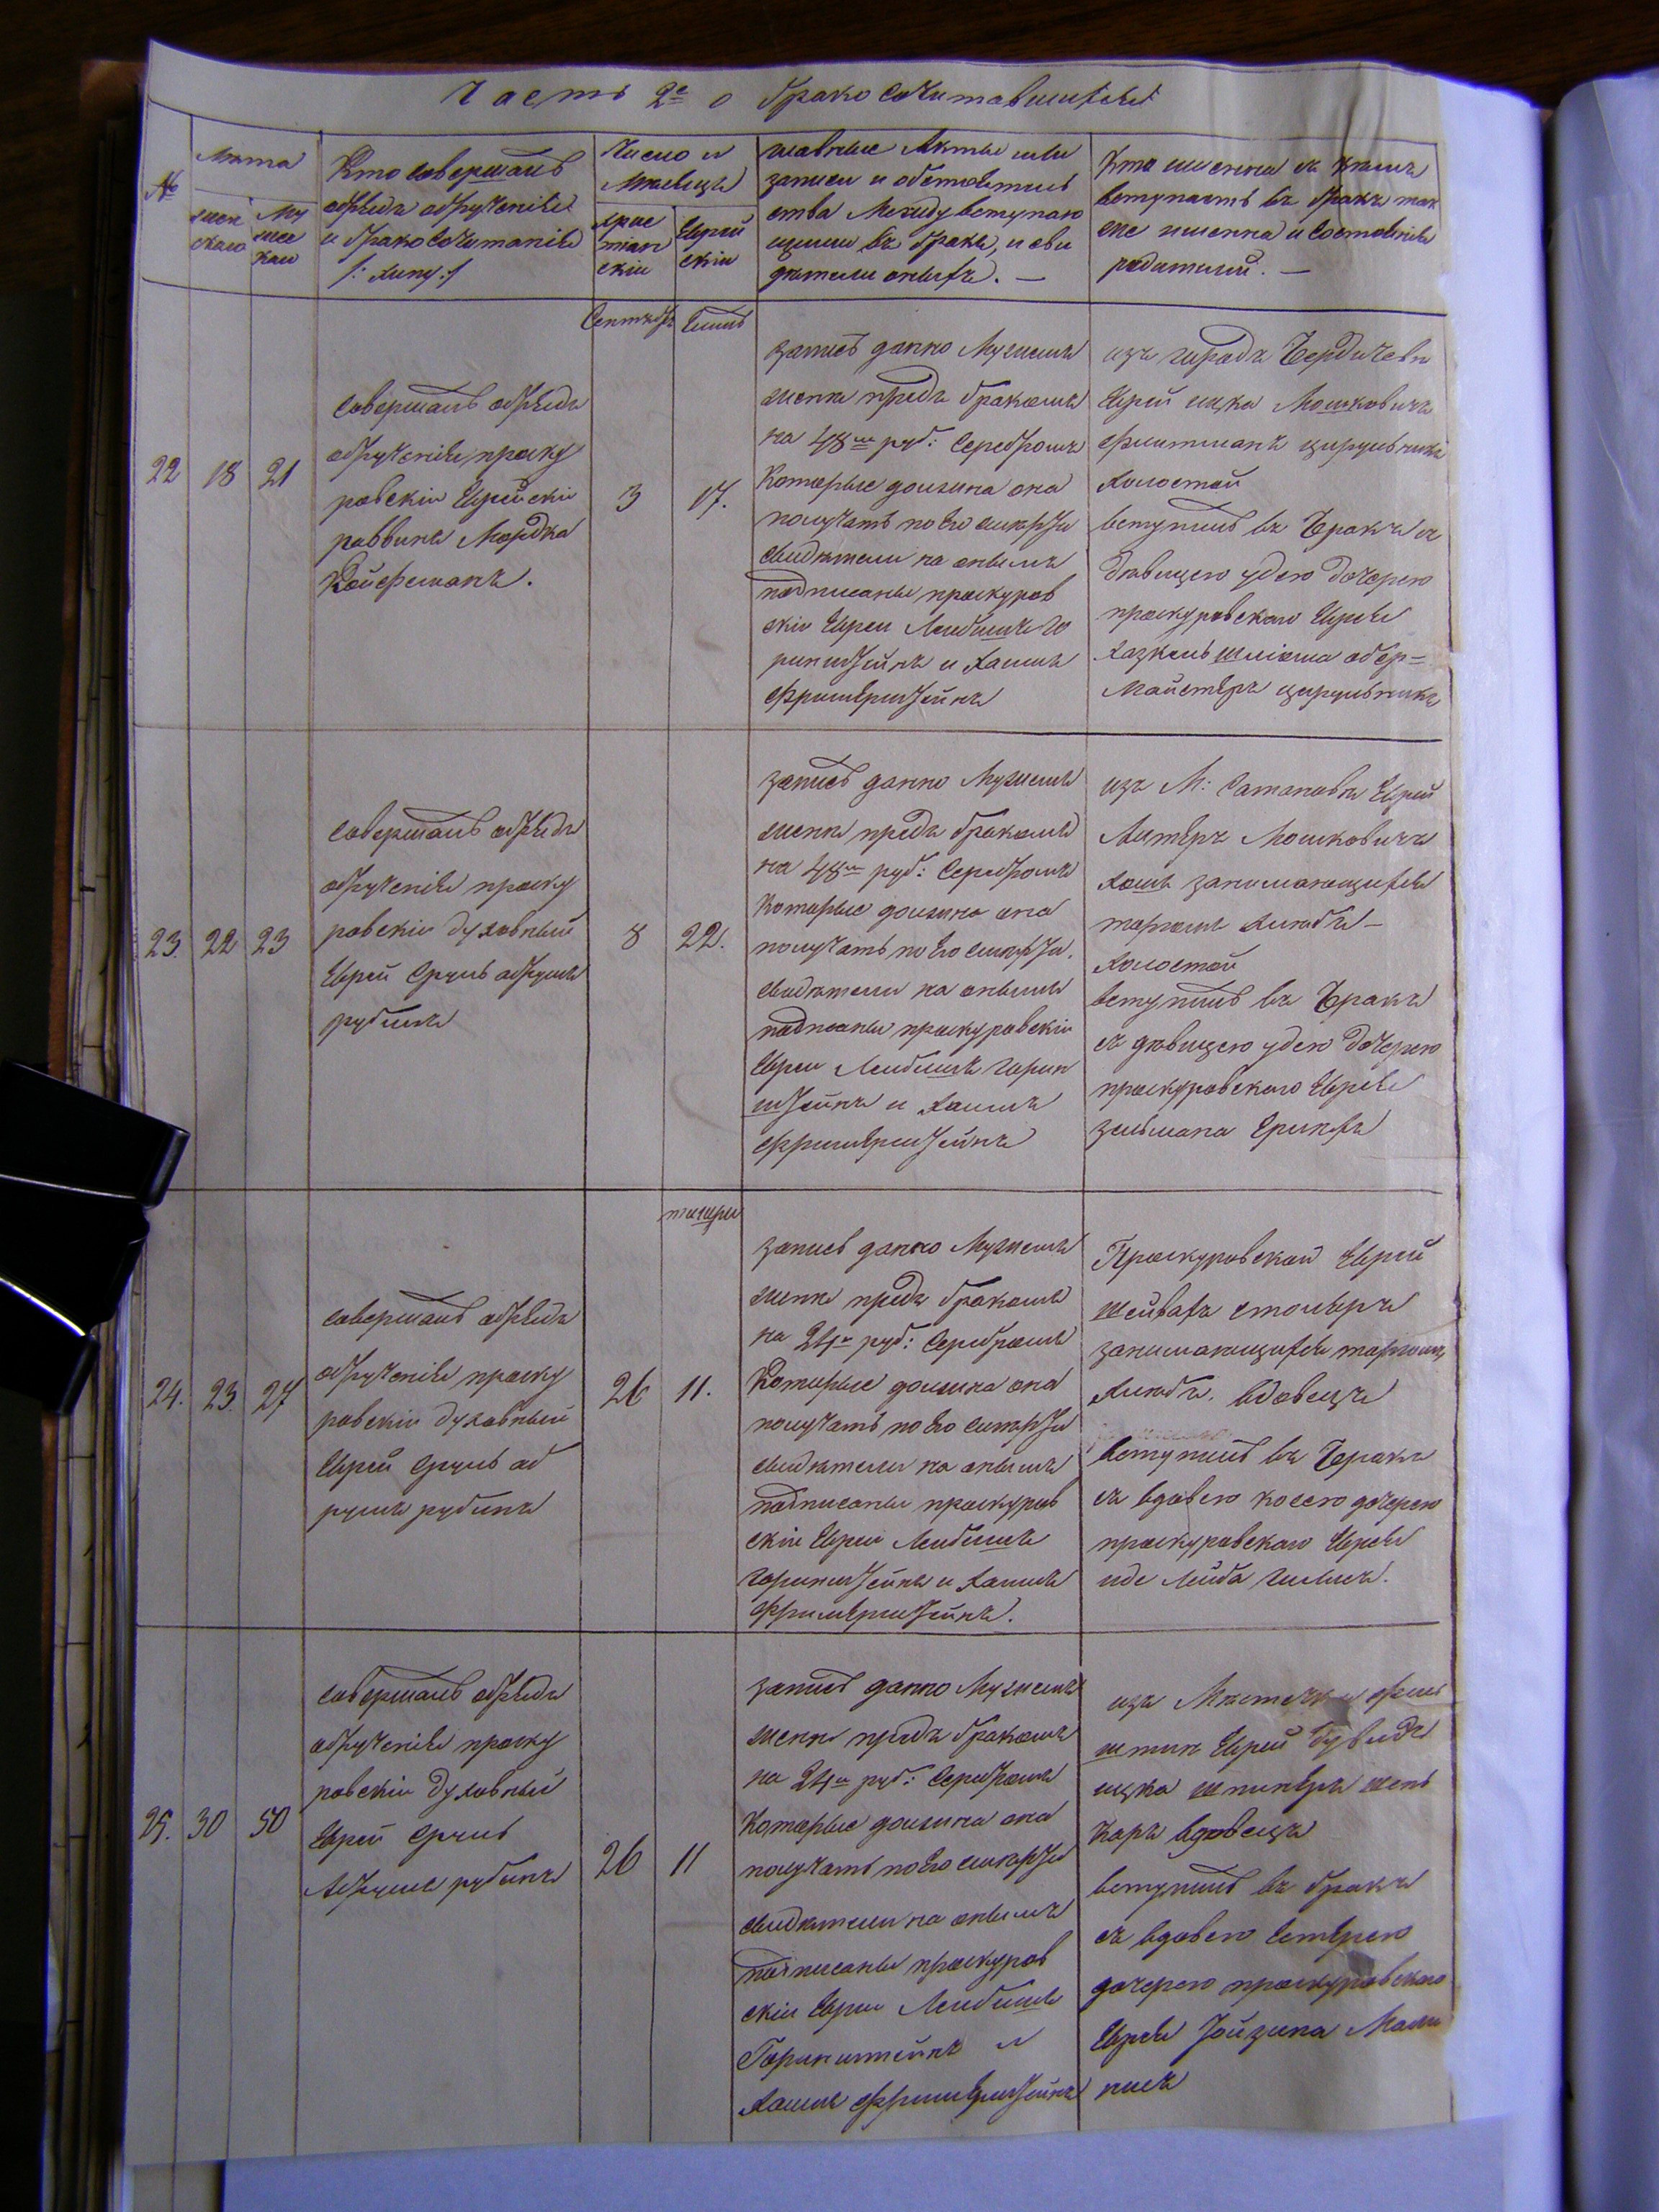 Часть 2я о бракосочитавшихся
№
Лѣта
жен
скаго
Му
жес
каго
Кто совершалъ
обрядъ обрученія
и бракосочитанія
Число и
Мѣсяцъ
хрис
тиан
скій
Еврей
скій
Главные Акты или
записи и обстоятель
ства Между вступаю
щими въ бракъ, и сви
дѣтели оныхъ. —
Кто именна съ кемъ
вступаетъ въ бракъ так
же именна и состояніе
родителей. —
22
18
21
совершалъ обрядъ
обрученія проску
ровскій Еврейскій
раввинъ Мордка
Сентябрь
3
Елюль
17.
запись данно Мужемъ
жене предъ бракомъ
на 48м руб: серебромъ
Которые должна она
получать по Его смерти
свидѣтели на онымъ
подписаны проскуров
скіе Евреи Лейбишъ Го
ринштейнъ и Хаимъ
изъ города Бердичева
Еврей ицка Мошковичъ
цирульникъ
Холостой
вступилъ въ Бракъ съ
Дѣвицею удею дочерею
проскуровскаго Еврея
обер=
майстеръ цирульника
23.
22
23
совершалъ обрядъ
обрученія проску
ровскій духовный
Еврей Сруль абрумъ
рубинъ
8
22.
запись данно Мужемъ
жене предъ бракомъ
на 48м руб: серебромъ
Которые должна она
получать по Его смерти.
свидѣтели на онымъ
подписаны проскуровскіе
Евреи Лейбишъ Горин
штейнъ и Хаимъ
изъ М: Сатановки Еврей
Алтеръ Мошковичъ
занимающійся
торгомъ хлѣба —
Холостой
вступилъ въ Бракъ
съ дѣвицею удею дочерею
проскуровскаго Еврея
зельмана
24.
23.
27
совершалъ обрядъ
обрученія проску
ровскій духовный
Еврей Сруль аб
румъ рубинъ
26
тишри
11.
запись данно Мужемъ
жене предъ бракомъ
на 24м руб: серебромъ
Которые должна она
получать по Его смерти
свидѣтели на онымъ
подписаны проскуров
скіе Евреи Лейбишъ
Горинштейнъ и Хаимъ
Проскуровской Еврей
столяръ
занимающійся торгомъ
хлѣба. вдовецъ
вступилъ въ Бракъ
съ вдовею дочерею
проскуровскаго Еврея
Лейба
25.
30
50
совершалъ обрядъ
обрученія проску
ровскій духовный
Еврей Сруль
Абрумъ рубинъ
26
11
запись данно Мужемъ
жене предъ бракомъ
на 24м руб: серебромъ
Которые должна она
получать по Его смерти
свидѣтели на онымъ
подписаны проскуров
скіе Евреи Лейбишъ
Горинштейнъ и
Хаимъ
изъ Мѣстечка Фель
штин Еврей Дувидъ
ицка шень
каръ вдовецъ
вступилъ въ бракъ
съ вдовею Естерею
дочерею проскуровскаго
Еврея